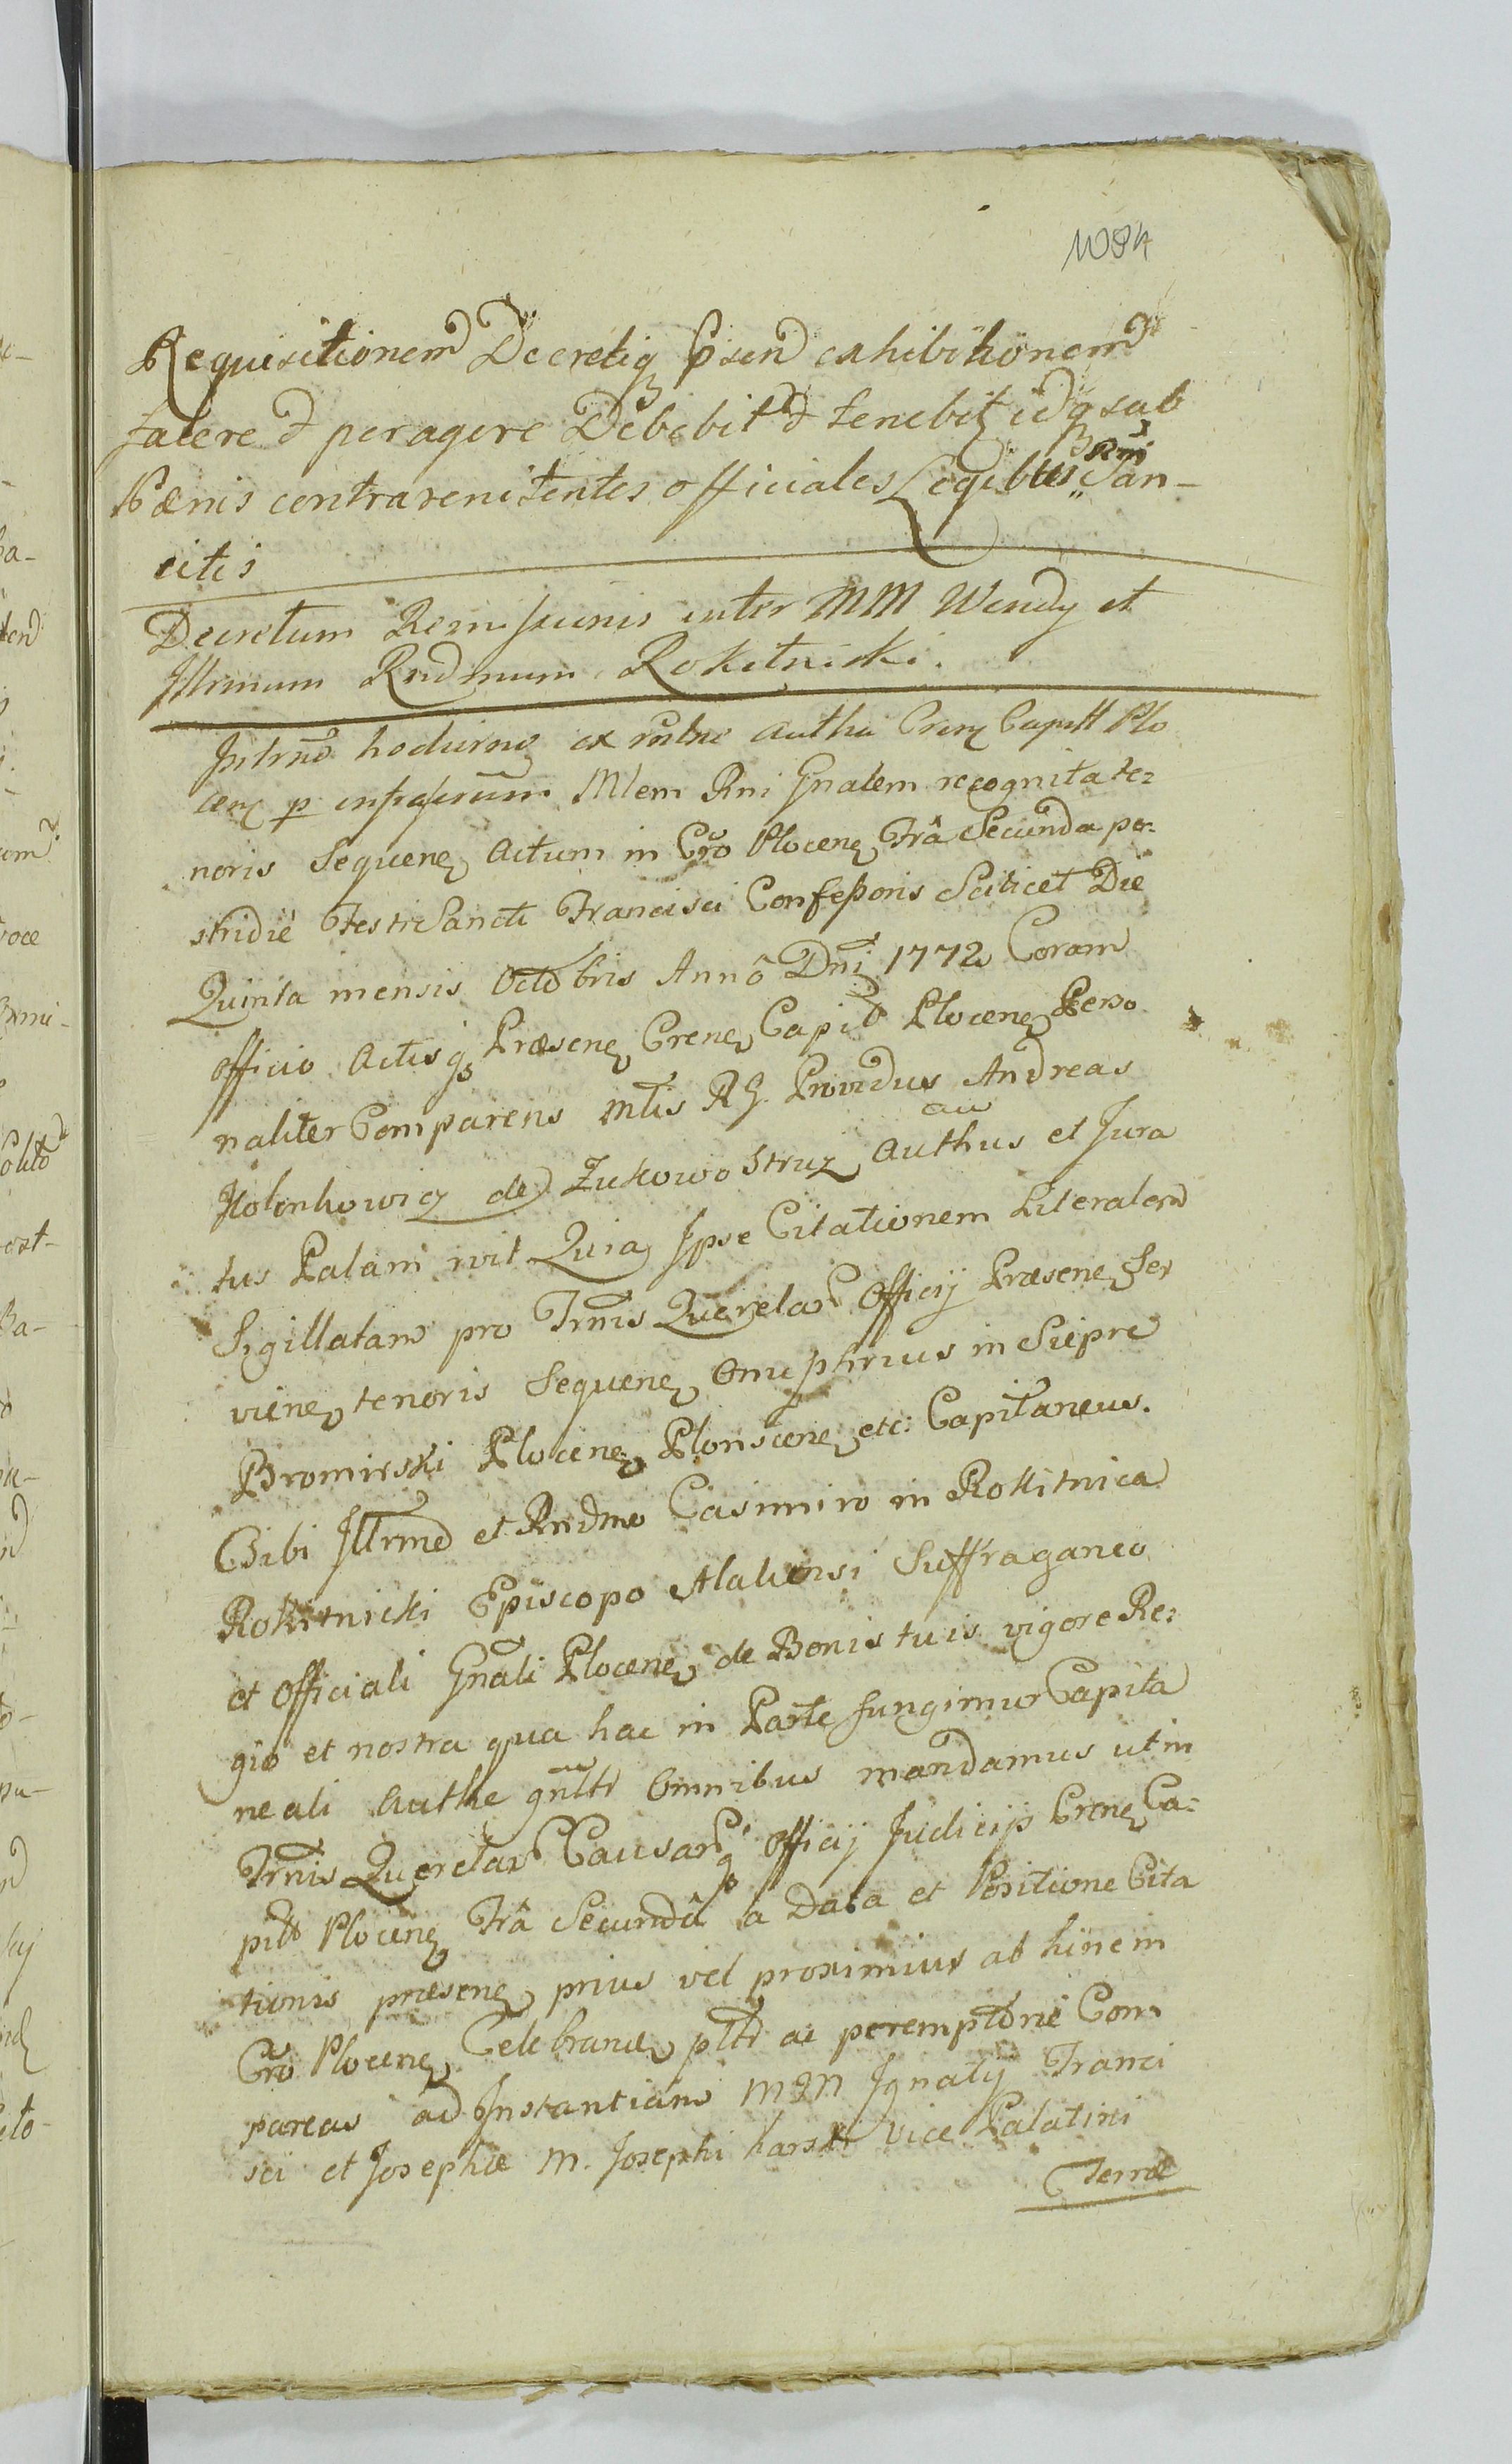 1084
Requisitionem Decretiq Psen exhibitionem
facere & peragere Debebit & tenebit idq sub
Pænis contravenientes officiales Legibus Rni San-
citis
Decretum Remissionis inter MM Wendy et
Illrmum Rndmum Rokitnicki.
hodierno ex Cren Capitt Plo
cen p infrascrium Mlem Rni Gnalem recognita te=
noris Sequenē Actum in Crō Plocenē Frâ Secunda po-
stridiè Festi Sancti Francisci Confeßoris Scilicet Die
Quinta mensis Octobris Annô Dni 1772 Coram
Officio Actisq Præsenē Crenē Capit Plocenē Perso
naliter Comparens Mtis RG. Providus Andreas
de Zukowo Struz au Authus et Jura
tus Palam Quia Ipse Citationem Literalem
Sigillatam pro Trnis Querelar Officij Præsenē Ser
vienē tenoris Sequenē Onuphrius in Siepre
Bromirski Plocenē Plonscenē etc: Capitaneus.
Tibi Illrmo et Rndmo Casimiro in Rokitnica
Rokitnicki Episcopo Alaliensi Suffraganeo
et Officiali Gnali Plocenē de Bonis tuis vigore Re=
gio et nostra qua hac in Parte fungimur Capita
neali Authe gnltr Omnibus mandamus ut in
Trnis Querelar Causarq Officij Judicijs Crenē Ca=
pitt Plocenē Frâ Secundâ a Data et Positione Cita
tionis præsenē prius vel proximius ab hinc in
Crō Plocenē Celebrandē pltr ac peremptorie Com
pareas ad Instantiam MM Ignatij Franci
sci et Josephæ M. Josephi Karski Vice Palatini
Terræ